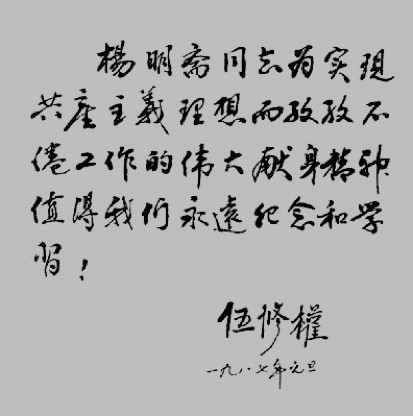 楊明斋同志为实現
共産主義理想而孜孜不
倦工作的伟大献身精神
值得我们永遠纪念和学
習！
伍修權
一九八七年元旦